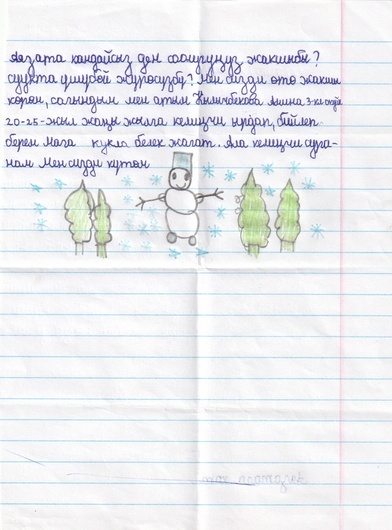 Аязата кандайсыз ден соолугуңуз жакшынбы?
суукта үшүбөй жүрөсүзбү? Мен сизди өтө жакшы
көрөм, сагындым мен атым Кылычбекова Амина 3-кл окуйм
20-25-жыл жаңы жылга келиңизчи ырдап, бийлеп
берем мага кукла белек жагат. Ала келиңизчи сура-
нам мен сизди күтөм